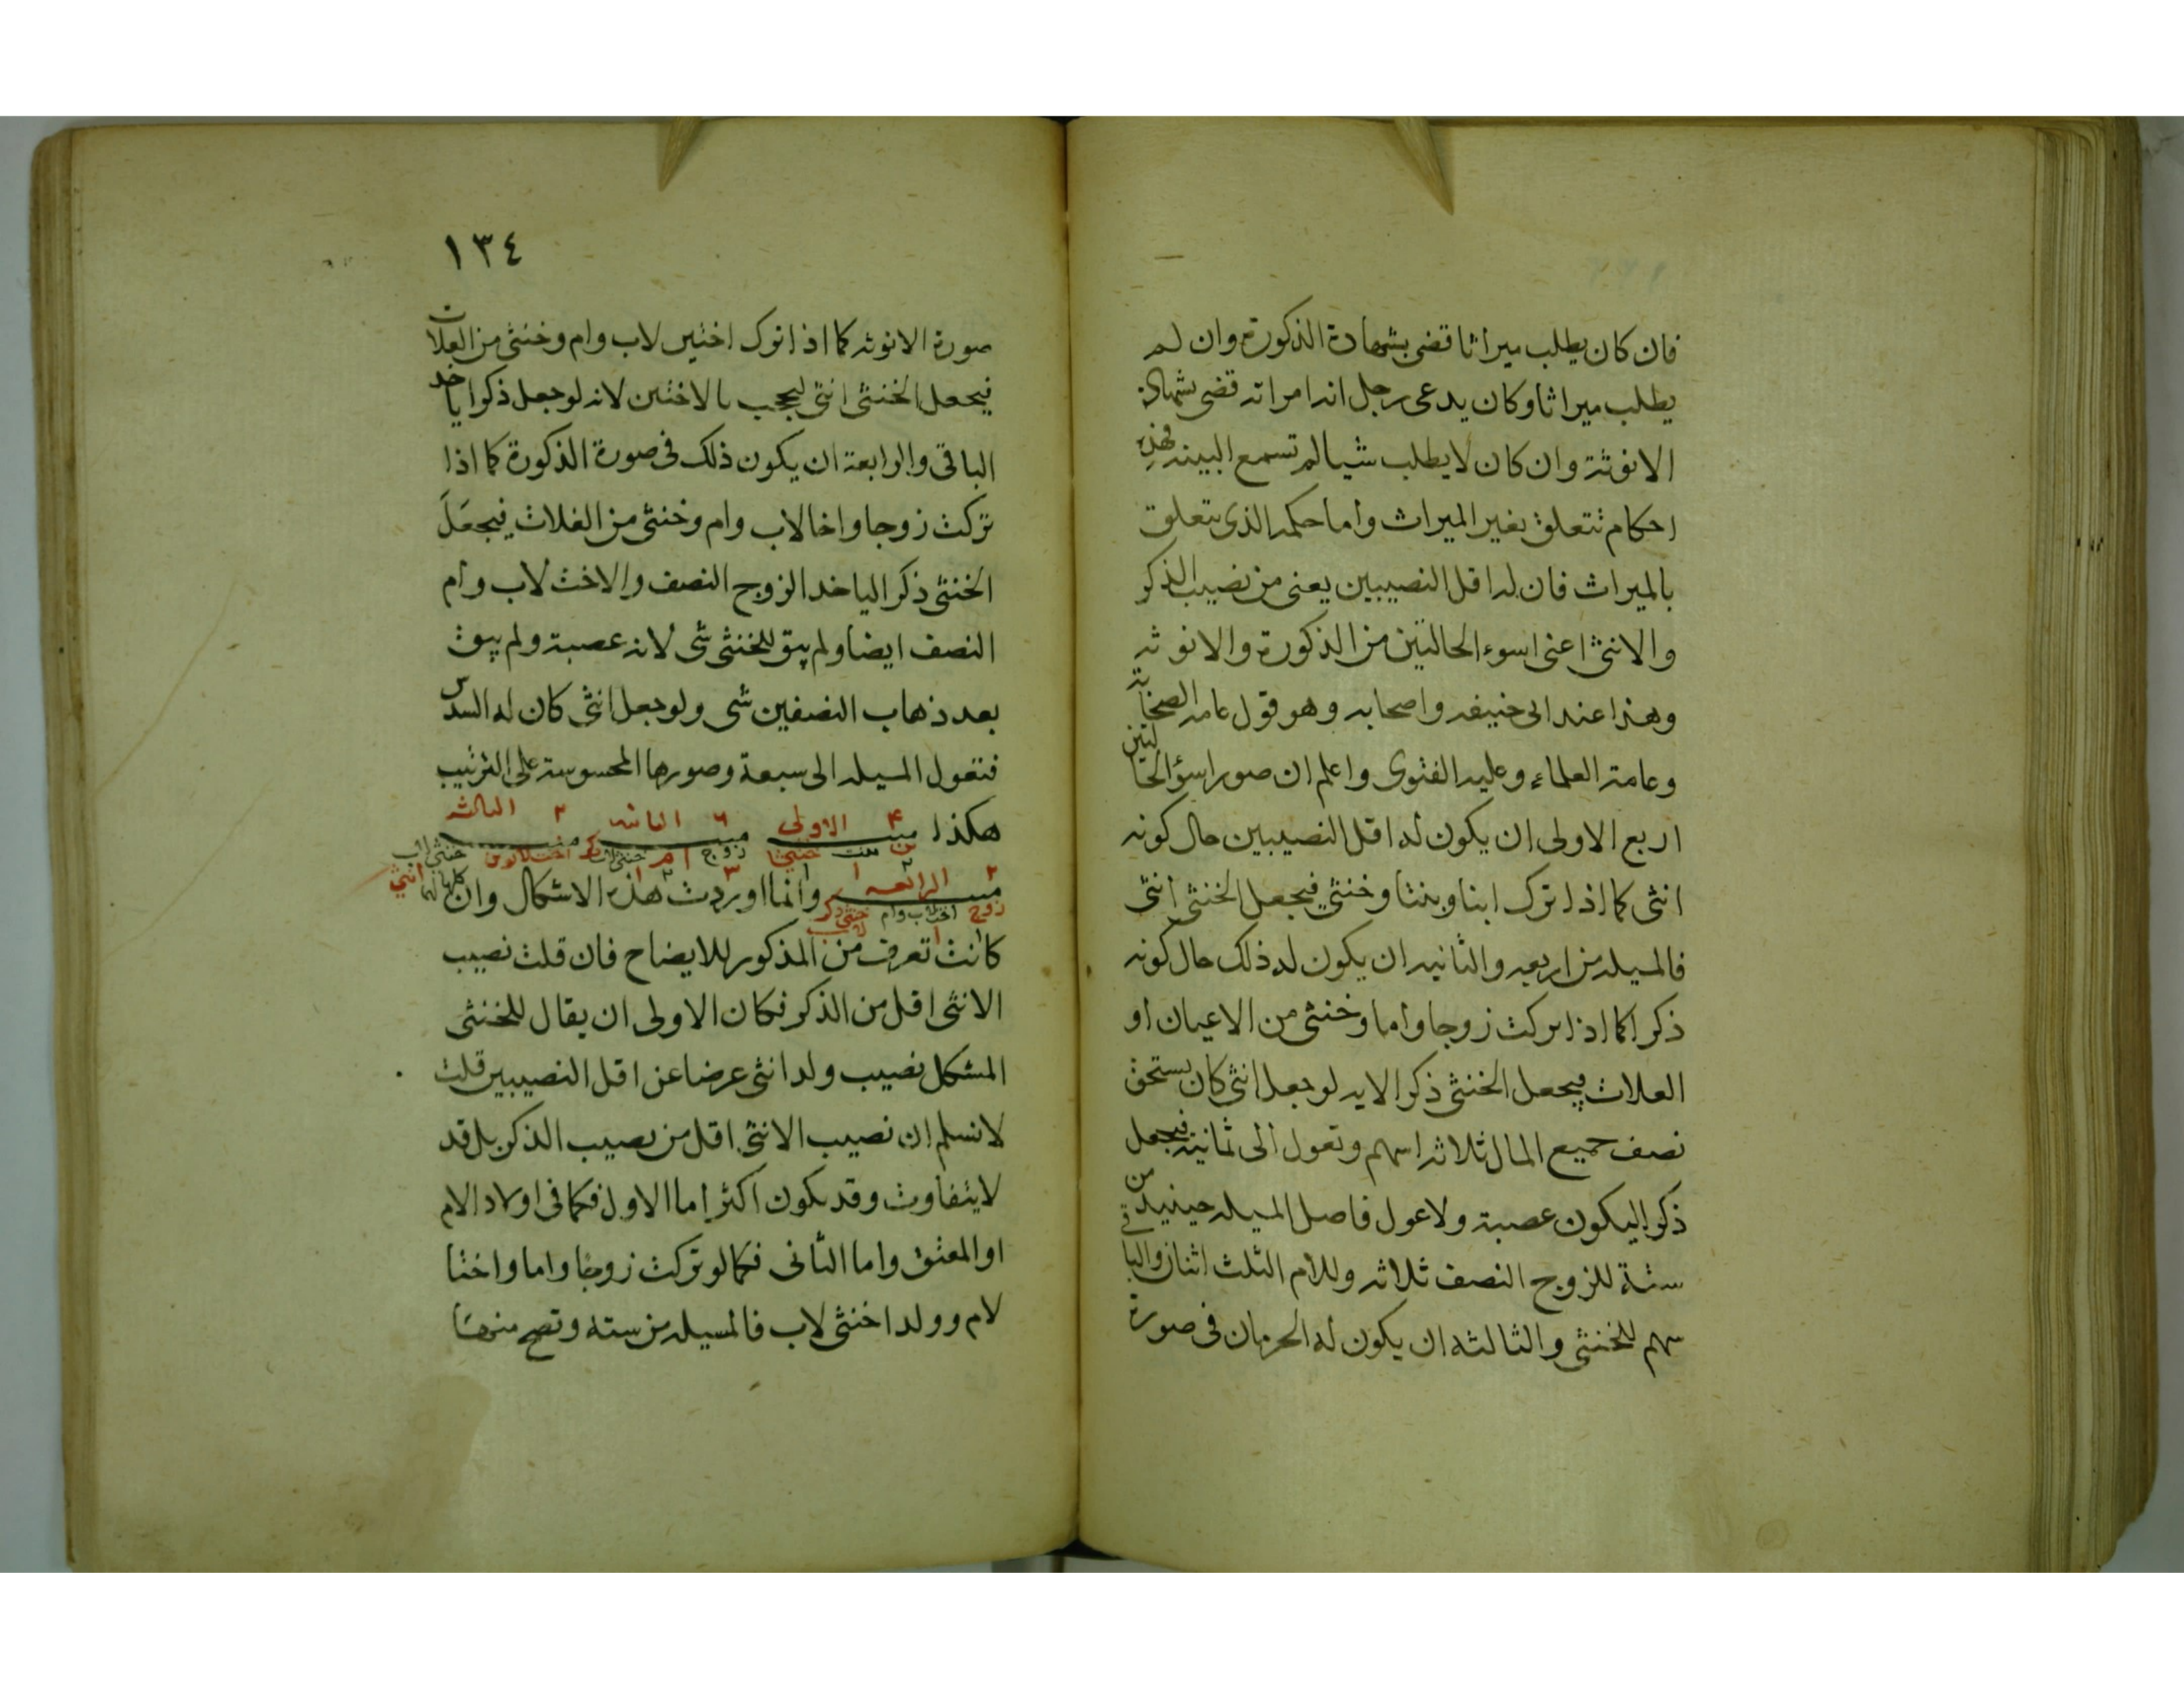 فان كان يطلب ميراثا قضى بشهادة الذكورة وان لم
يطلب ميراثا وكان يدعى رجل انه امراته قضى بشهادة
الانوثة وان كان لا يطلب شيا لم تسمع البينه فهذه
احكام تتعلق بغير الميراث واما حكمه الذى يتعلق
بالميراث فان له اقل النصيبين يعنى من نصيب الذكر
والانثى اعنى اسوء الحالتين من الذكورة والانوثه
وهذا عند ابى حنيفه واصحابه وهو قول عامه الصحابة
وعامة العلماء وعليه الفتوى واعلم ان صور اسؤ الحالتين
اربع الاولى ان يكون له اقل النصيبين حال كونه
انثى كما اذا ترك ابنا وبنتا وخنثى فيجعل الخنثى انثى
فالمسيله من اربعه والثانيه ان يكون له ذلك حال كونه
ذكرا كما اذا تركت زوجا واما وخنثى من الاعيان او
العلات فيجعل الخنثى ذكرا لانه لو جعل انثى كان يستحق
نصف جميع المال ثلاثه اسهم وتعول الى ثمانية فيجعل
ذكرا ليكون عصبة ولا عول فاصل المسيله حينيذ من
ستة للزوج النصف ثلاثه وللام الثلث اثنان والباقى
سهم للخنثى والثالثه ان يكون له الحرمان فى صورة
١٣٤
صورة الانوثه كما اذا ترك اختين لاب وام وخنثى من العلات
فيجعل الخنثى انثى ليحجب بالاختين لانه لو جعل ذكرا ياخد
الباقى والرابعة ان يكون ذلك فى صورة الذكورة كما اذا
تركت زوجا واختا لاب وام وخنثى من العلات فيجعل
الخنثى ذكرا لياخد الزوج النصف والاخت لاب وام
النصف ايضا ولم يبق للخنثى شى لانه عصبة ولم يبق
بعد ذهاب النصفين شى ولو جعل انثى كان له السدس
فتعول المسيله الى سبعة وصورها المحسوسة على الترتيب
هكذا ۴ الاولى ٦ الثانيه ٣ الثالثه
ابن بنت خنثى زوج ام خنثى ذكر اختين لابوين خنثى لاب
٢ الرابعه وانما اوردت هذه الاشكال وان
زوج اخت لاب وام خنثى ذكر لاب
كانت تعرف من المذكور للايضاح فان قلت نصيب
الانثى اقل من الذكر فكان الاولى ان يقال للخنثى
المشكل نصيب ولد انثى عرضا عن اقل النصيبين قلت
لا نسلم ان نصيب الانثى اقل من نصيب الذكر بل قد
لا يتفاوت وقد يكون اكثر اما الاول فكما فى اولاد الام
او المعتق واما الثانى فكما لو تركت زوجا واما واختا
لام وولدا خنثى لاب فالمسيله من سته وتصح منها